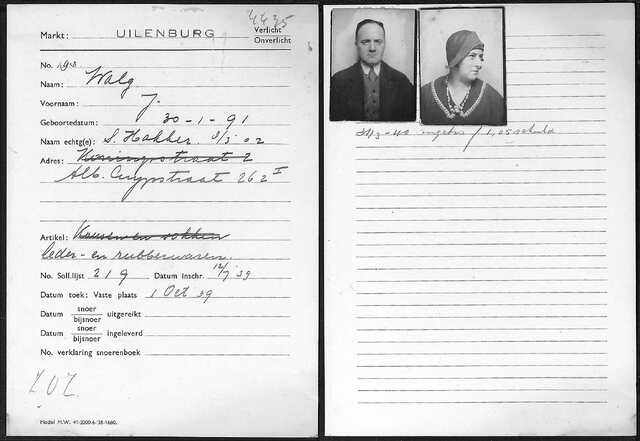 4435
Markt: UILENBURG Verlicht
Onverlicht
No. 190
Naam: Walg
Voornaam: J.
Geboortedatum: 30-1-91
Naam echtg(e): S. Hakker 3/3 02
Adres: Koningsstraat 2
Alb. Cuypstraat 262 I
Artikel: Kousen en sokken
leder- en rubberwaren.
No. Soll.lijst 219 Datum Inschr. 12/7 '39
Datum toek: Vaste plaats 1 Oct 39
Datum snoer
bijsnoer uitgereikt
Datum snoer
bijsnoer ingeleverd
No. verklaring snoerenboek
Z.O.Z.
Model M.W. 41-2000-6-'38-1660.
1,05 schuld